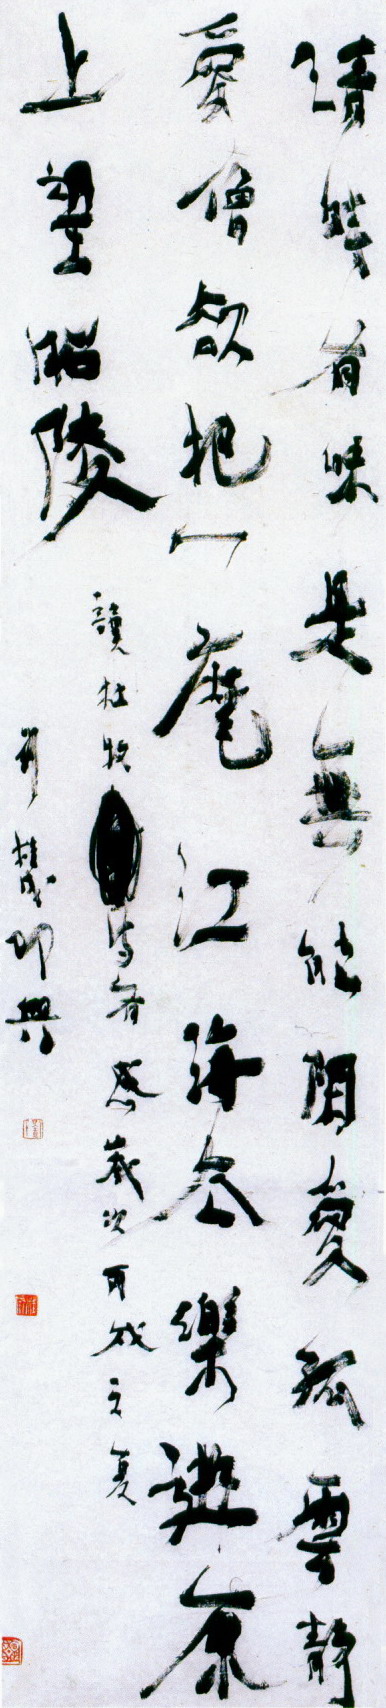 清時有味是無能閒愛孤雲靜
愛僧欲把一麾江海去樂遊原
上望昭陵
讀杜牧詩有感歲次丙戌之夏
即興